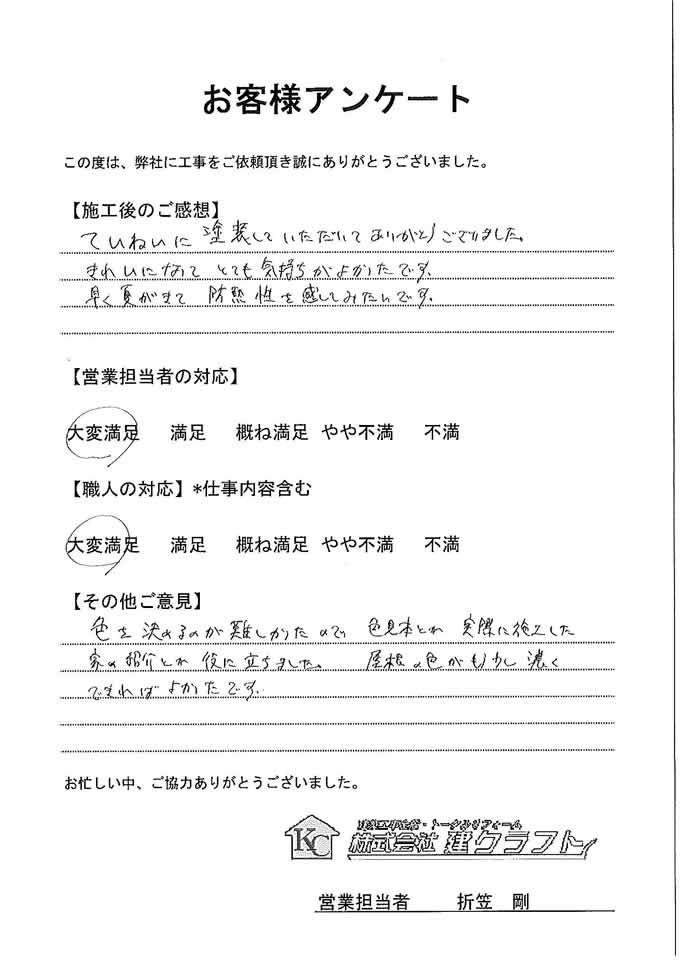 お客様アンケート
この度は、弊社に工事をご依頼頂き誠にありがとうございました。
【施工後のご感想】
ていねいに 塗装していただいてありがとうございました。
きれいになって とても気持ちがよかったです。
早く夏がきて 防熱性を感じてみたいです。
【営業担当者の対応】
大変満足 満足 概ね満足 やや不満 不満
【職人の対応】*仕事内容含む
大変満足 満足 概ね満足 やや不満 不満
【その他ご意見】
色を決めるのが難しかったので 色見本とか 実際に施工した
家の紹介とか 役に立ちました。 屋根の色がもう少し濃く
できればよかったです。
お忙しい中、ご協力ありがとうございました。
KC
株式会社 建クラフト
営業担当者 折笠 剛